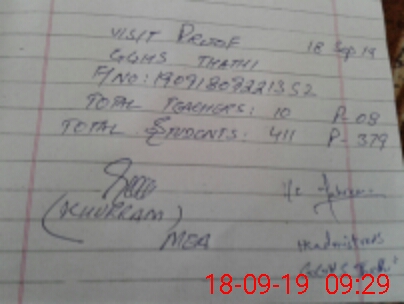 VISIT PROOF 18 Sep 19
GGHS THATHI
F/NO: 19091809221352
TOTAL TEACHERS: 10 P-08
TOTAL STUDENTS: 411 P-379
(KHURRAM)
MEA
I/C
Headmistress
GGHS Thathi
18-09-19 09:29